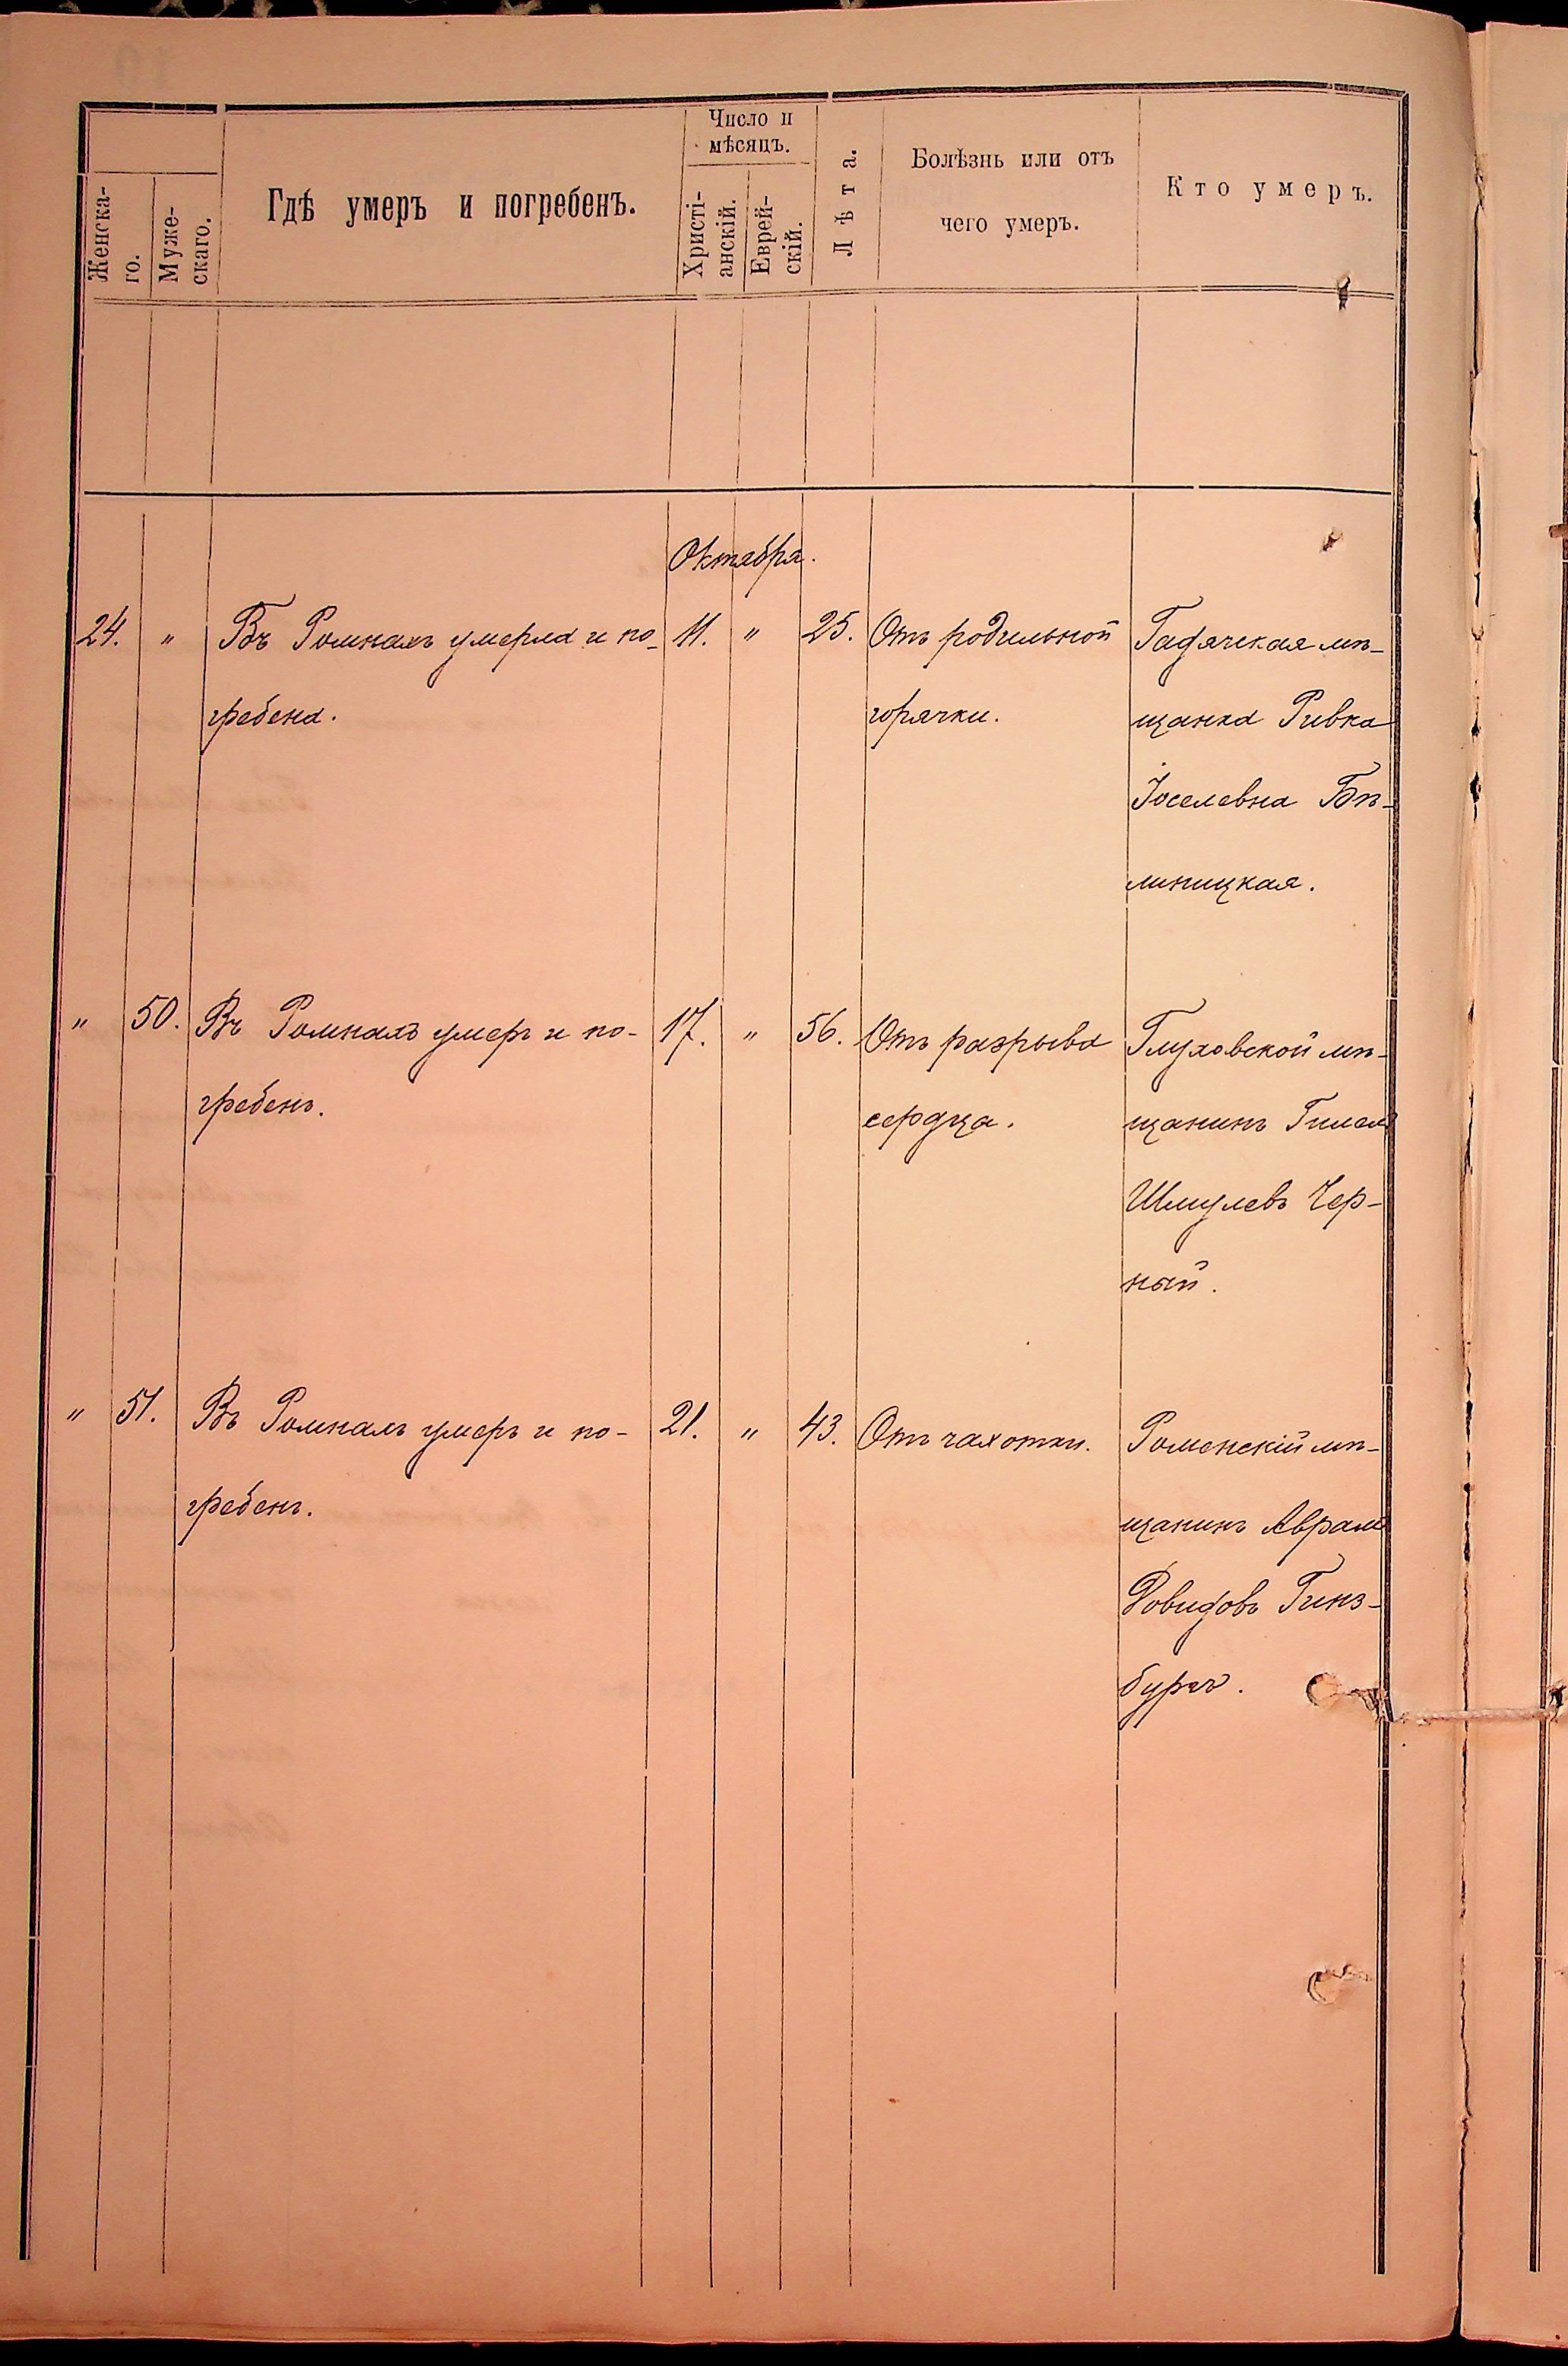 Женска-
го.
Муже-
скаго.
Гдѣ умеръ и погребенъ.
Число и
мѣсяцъ.
Христі-
анскій.
Еврей-
скій.
Лѣта.
Болѣзнь или отъ
чего умеръ.
Кто умеръ.
Октября.
24. " Въ Ромнахъ умерла и по- 11. " 25. Отъ родильной Гадячская мѣ-
гребена. горячки. щанка Ривка
Іоселевна Бѣ-
линицкая.
" 50. Въ Ромнахъ умеръ и по- 17. " 56. Отъ разрыва Глуховской мѣ-
гребенъ. сердца. щанинъ Гилель
Шмулевъ Чер-
ный.
" 51. Въ Ромнахъ умеръ и по- 21. " 43. Отъ чахотки. Роменскій мѣ-
гребенъ. щанинъ Аврамъ
Довидовъ Гинз-
бургъ.